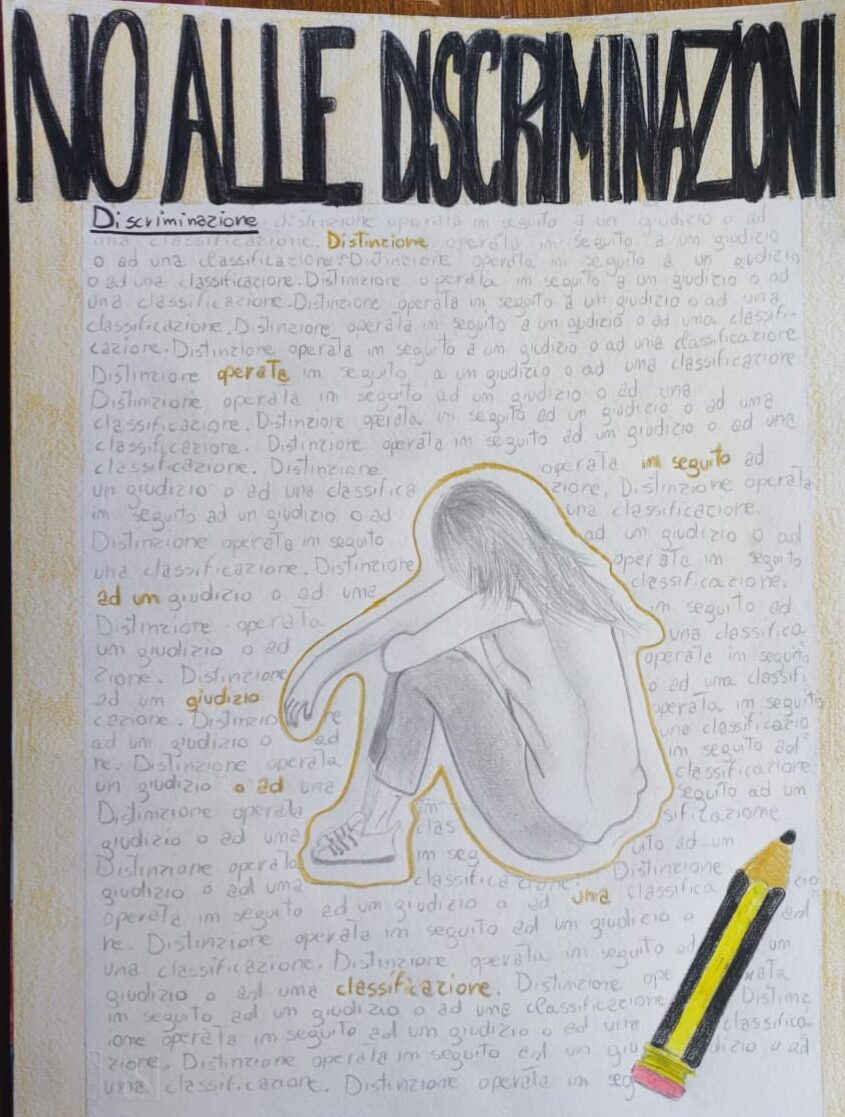 NO ALLE DISCRIMINAZIONI
Discriminazione distinzione operata in seguito a un giudizio o ad
una classificazione. Distinzione operata in seguito a un giudizio
o ad una classificazione. Distinzione operata in seguito a un giudizio
o ad una classificazione. Distinzione operata in seguito a un giudizio o ad
una classificazione. Distinzione operata in seguito a un giudizio o ad una
classificazione. Distinzione operata in seguito a un giudizio o ad una classifi-
cazione. Distinzione operata in seguito a un giudizio o ad una classificazione
Distinzione operata in seguito a un giudizio o ad una classificazione
Distinzione operata in seguito ad un giudizio o ad una
classificazione. Distinzione operata in seguito ad un giudizio o ad una
classificazione. Distinzione operata in seguito ad un giudizio o ad una
classificazione. Distinzione operata in seguito ad
un giudizio o ad una classifica zione. Distinzione operata
in seguito ad un giudizio o ad una classificazione.
Distinzione operata in seguito ad un giudizio o ad
una classificazione. Distinzione operata in seguito
ad un giudizio o ad una classificazione.
Distinzione operata in seguito ad
un giudizio o ad una classifica
zione. Distinzione operata in seguito
ad un giudizio o ad una classifi
cazione. Distinzio ne operata in seguito
ad un giudizio o ad una classificazio
ne. Distinzione operata in seguito ad
un giudizio o ad una classificazione
Distinzione operata in seguito ad un
giudizio o ad una clas sificazione
Distinzione operata in seg uito ad un
giudizio o ad una classificazione. Distinzione
operata in seguito ad un giudizio o ad una classifica zio
re. Distinzione operata in seguito ad un giudizio o ad
una classificazione. Distinzione operata in seguito ad un
giudizio o ad una classificazione. Distinzione ope rata
in seguito ad un giudizio o ad una classificazione Distinz
ione operata in seguito ad un giudizio o ad una classifica
zione. Distinzione operata in seguito ad un giu dizio o ad
una classificazione. Distinzione operata in seg